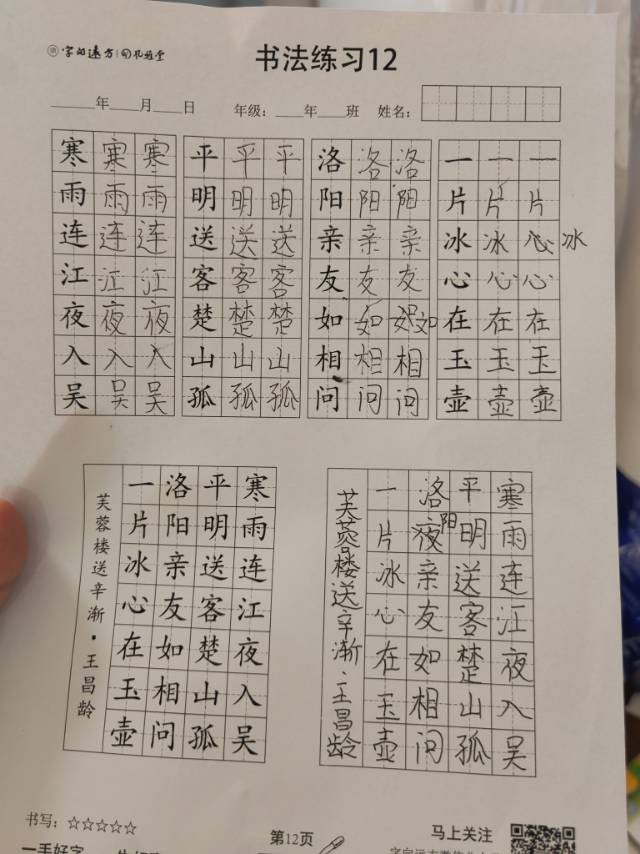 字的远方
书法练习12
年 月 日 年级: 年 班 姓名:
寒寒寒 平平平 洛洛洛 一一一
雨雨雨 明明明 阳阳阳 片片片
连连连 送送送 亲亲亲 冰冰心冰
江江江 客客客 友友友 心心心
夜夜夜 楚楚楚 如如如如 在在在
入入入 山山山 相相相 玉玉玉
吴吴吴 孤孤孤 问问问 壶壶壶
寒雨连江夜入吴
平明送客楚山孤
洛阳亲友如相问
一片冰心在玉壶
芙蓉楼送辛渐·王昌龄
寒雨连江夜入吴
平明送客楚山孤
洛夜阳亲友如相问
一片冰心在玉壶
芙蓉楼送辛渐·王昌龄
书写:☆☆☆☆☆
第12页
马上关注
一手好字